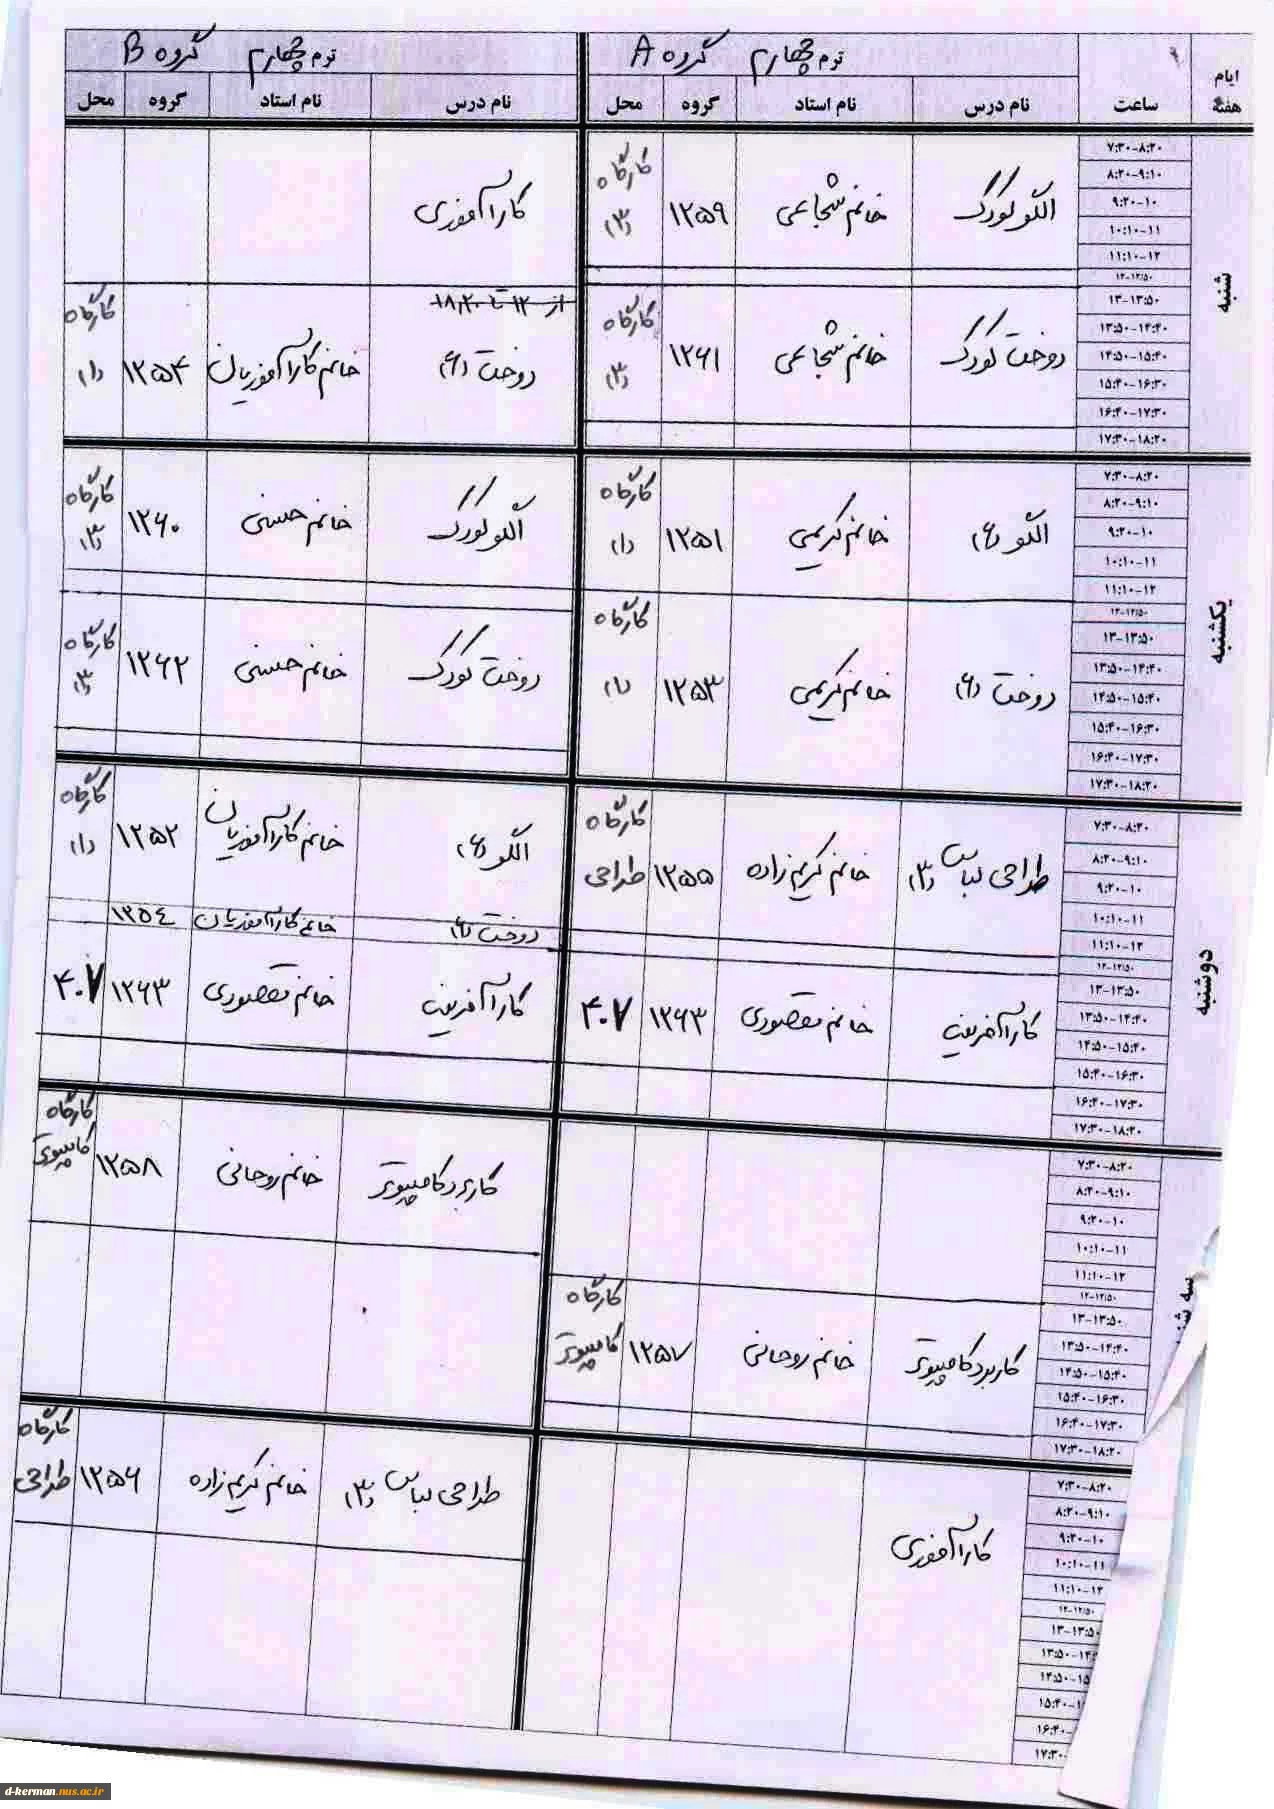 ایام هفته ساعت ترم چهارم گروه A ترم چهارم گروه B
نام درس نام استاد گروه محل نام درس نام استاد گروه محل
شنبه
۷:۳۰-۸:۲۰
۸:۲۰-۹:۱۰
۹:۲۰-۱۰
۱۰:۱۰-۱۱
۱۱:۱۰-۱۲
۱۲-۱۲/۵۰
۱۳-۱۳:۵۰
۱۳:۵۰-۱۴:۴۰
۱۴:۵۰-۱۵:۴۰
۱۵:۴۰-۱۶:۳۰
۱۶:۴۰-۱۷:۳۰
۱۷:۳۰-۱۸:۲۰
الگو کودک خانم شجاعی ۱۲۵۹ کارگاه (۳)
کارآموزی
دوخت کودک خانم شجاعی ۱۲۶۱ کارگاه (۳)
از ۱۲ تا ۱۸,۲۰
دوخت (۶) خانم کارآموزیان ۱۲۵۴ کارگاه (۱)
یکشنبه
۷:۳۰-۸:۲۰
۸:۲۰-۹:۱۰
۹:۲۰-۱۰
۱۰:۱۰-۱۱
۱۱:۱۰-۱۲
۱۲-۱۲/۵۰
۱۳-۱۳:۵۰
۱۳:۵۰-۱۴:۴۰
۱۴:۵۰-۱۵:۴۰
۱۵:۴۰-۱۶:۳۰
۱۶:۴۰-۱۷:۳۰
۱۷:۳۰-۱۸:۲۰
الگو (۶) خانم کریمی ۱۲۵۱ کارگاه (۱)
الگو کودک خانم حسنی ۱۲۶۰ کارگاه (۳)
دوخت (۶) خانم کریمی ۱۲۵۳ کارگاه (۱)
دوخت کودک خانم حسنی ۱۲۶۲ کارگاه (۳)
دوشنبه
۷:۳۰-۸:۲۰
۸:۲۰-۹:۱۰
۹:۲۰-۱۰
۱۰:۱۰-۱۱
۱۱:۱۰-۱۲
۱۲-۱۲/۵۰
۱۳-۱۳:۵۰
۱۳:۵۰-۱۴:۴۰
۱۴:۵۰-۱۵:۴۰
۱۵:۴۰-۱۶:۳۰
۱۶:۴۰-۱۷:۳۰
۱۷:۳۰-۱۸:۲۰
طراحی لباس (۳) خانم کریم زاده ۱۲۵۵ کارگاه طراحی
الگو (۶) خانم کارآموزیان ۱۲۵۲ کارگاه (۱)
دوخت (۶) خانم کارآموزیان ۱۲۵۴
کارآفرینی خانم مقصودی ۱۲۶۳ ۴۰۷
کارآفرینی خانم مقصودی ۱۲۶۳ ۴۰۷
سه شنبه
۷:۳۰-۸:۲۰
۸:۲۰-۹:۱۰
۹:۲۰-۱۰
۱۰:۱۰-۱۱
۱۱:۱۰-۱۲
۱۲-۱۲/۵۰
۱۳-۱۳:۵۰
۱۳:۵۰-۱۴:۴۰
۱۴:۵۰-۱۵:۴۰
۱۵:۴۰-۱۶:۳۰
۱۶:۴۰-۱۷:۳۰
۱۷:۳۰-۱۸:۲۰
کاربرد کامپیوتر خانم روحانی ۱۲۵۸ کارگاه کامپیوتر
کاربرد کامپیوتر خانم روحانی ۱۲۵۷ کارگاه کامپیوتر
۷:۳۰-۸:۲۰
۸:۲۰-۹:۱۰
۹:۲۰-۱۰
۱۰:۱۰-۱۱
۱۱:۱۰-۱۲
۱۲-۱۲/۵۰
۱۳-۱۳:۵۰
۱۳:۵۰-۱۴:
۱۴:۵۰-۱۵
۱۵:۴۰-۱
۱۶:۴۰-
۱۷:۳۰-
کارآموزی
طراحی لباس (۳) خانم کریم زاده ۱۲۵۶ کارگاه طراحی
d-kerman.nus.ac.ir